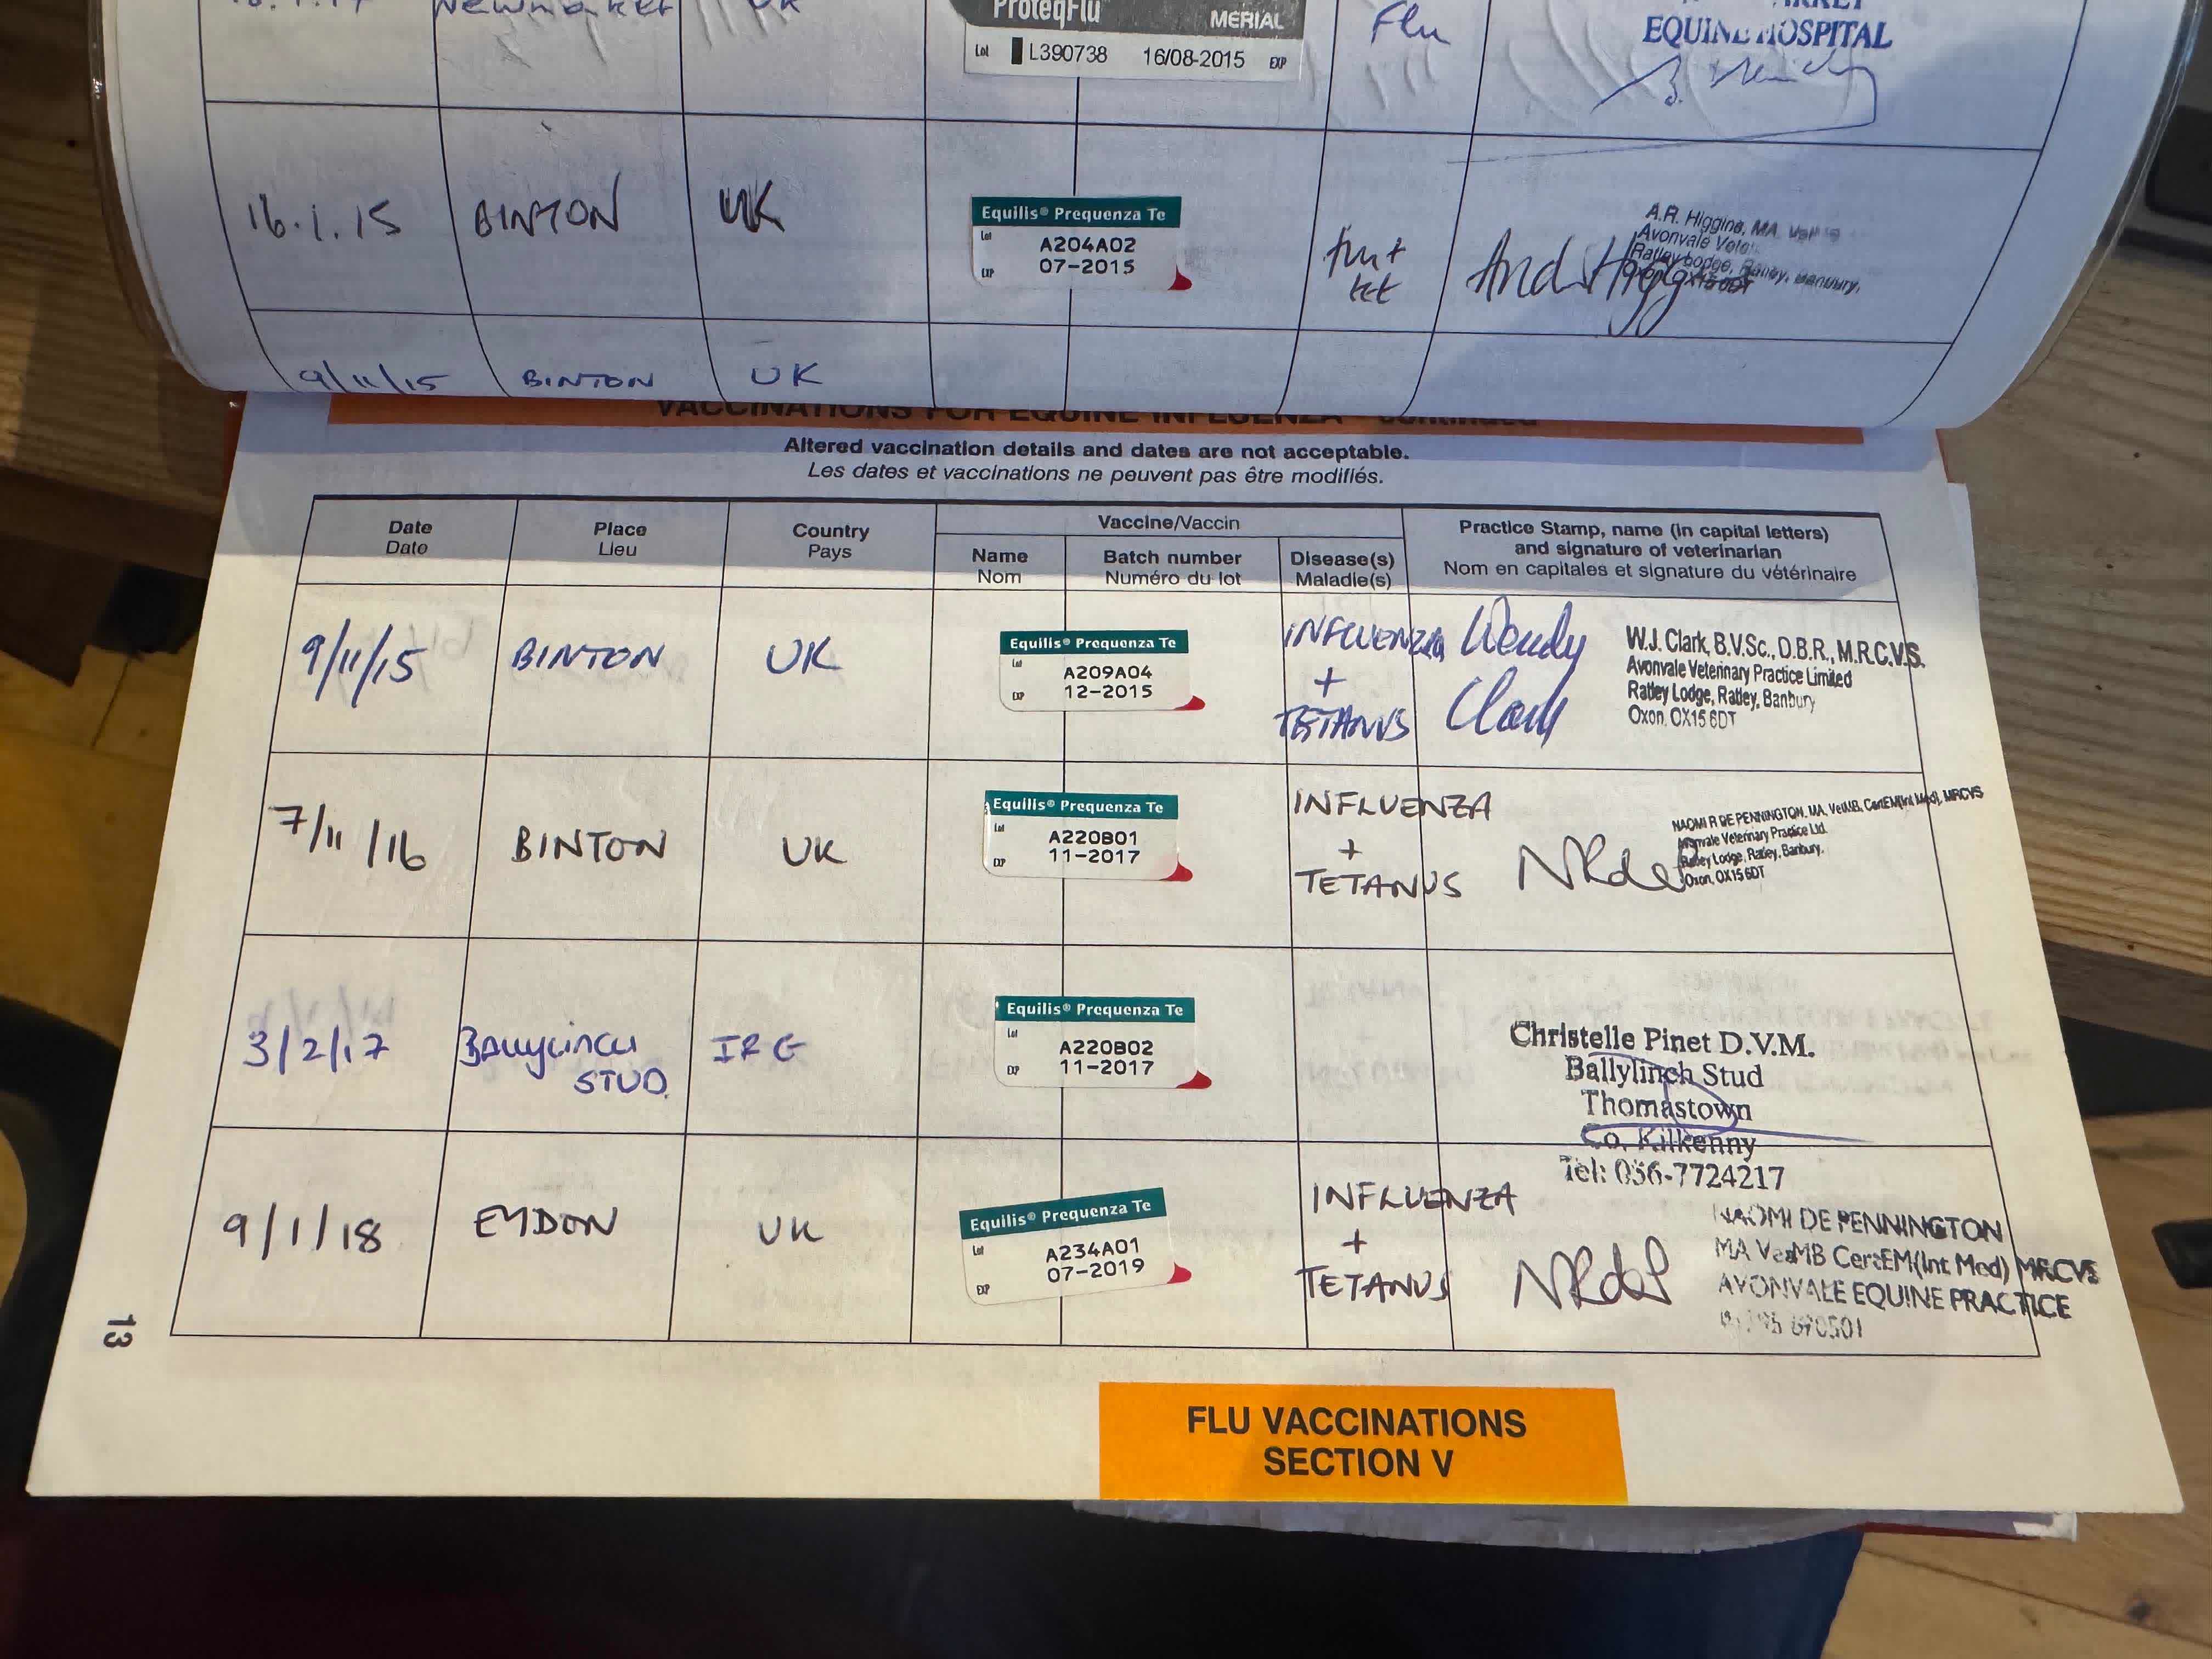 Newmarket UK
ProteqFlu
MERIAL
Lot L390738 16/08-2015 EXP
Flu
EQUINE HOSPITAL
16.1.15 BINTON UK
Equilis® Prequenza Te
Lot A204A02
EXP 07-2015
flu + tet
A.R. Higgins, MA
Avonvale
Ratley Lodge, Ratley, Banbury,
Oxon, OX15 6DT
9/11/15 BINTON UK
VACCINATIONS FOR EQUINE INFLUENZA continued
Altered vaccination details and dates are not acceptable.
Les dates et vaccinations ne peuvent pas être modifiés.
Date
Date
Place
Lieu
Country
Pays
Vaccine/Vaccin
Name
Nom
Batch number
Numéro du lot
Disease(s)
Maladie(s)
Practice Stamp, name (in capital letters)
and signature of veterinarian
Nom en capitales et signature du vétérinaire
9/11/15 BINTON UK
Equilis® Prequenza Te
Lot A209A04
EXP 12-2015
INFLUENZA
+
TETANUS
Wendy
Clark
W.J. Clark, B.V.Sc., D.B.R., M.R.C.V.S.
Avonvale Veterinary Practice Limited
Ratley Lodge, Ratley, Banbury
Oxon, OX15 6DT
7/11/16 BINTON UK
Equilis® Prequenza Te
Lot A220B01
EXP 11-2017
INFLUENZA
+
TETANUS
NRdeP
NAOMI R DE PENNINGTON, MA, VetMB, CertEM(Int Med), MRCVS
Avonvale Veterinary Practice Ltd.
Ratley Lodge, Ratley, Banbury,
Oxon, OX15 6DT
3/2/17 Ballylinch
STUD. IRE
Equilis® Prequenza Te
Lot A220B02
EXP 11-2017
Christelle Pinet D.V.M.
Ballylinch Stud
Thomastown
Co. Kilkenny
Tel: 056-7724217
9/1/18 EYDON UK
Equilis® Prequenza Te
Lot A234A01
EXP 07-2019
INFLUENZA
+
TETANUS
NRdeP
NAOMI DE PENNINGTON
MA VetMB CertEM(Int Med) MRCVS
AVONVALE EQUINE PRACTICE
13
FLU VACCINATIONS
SECTION V